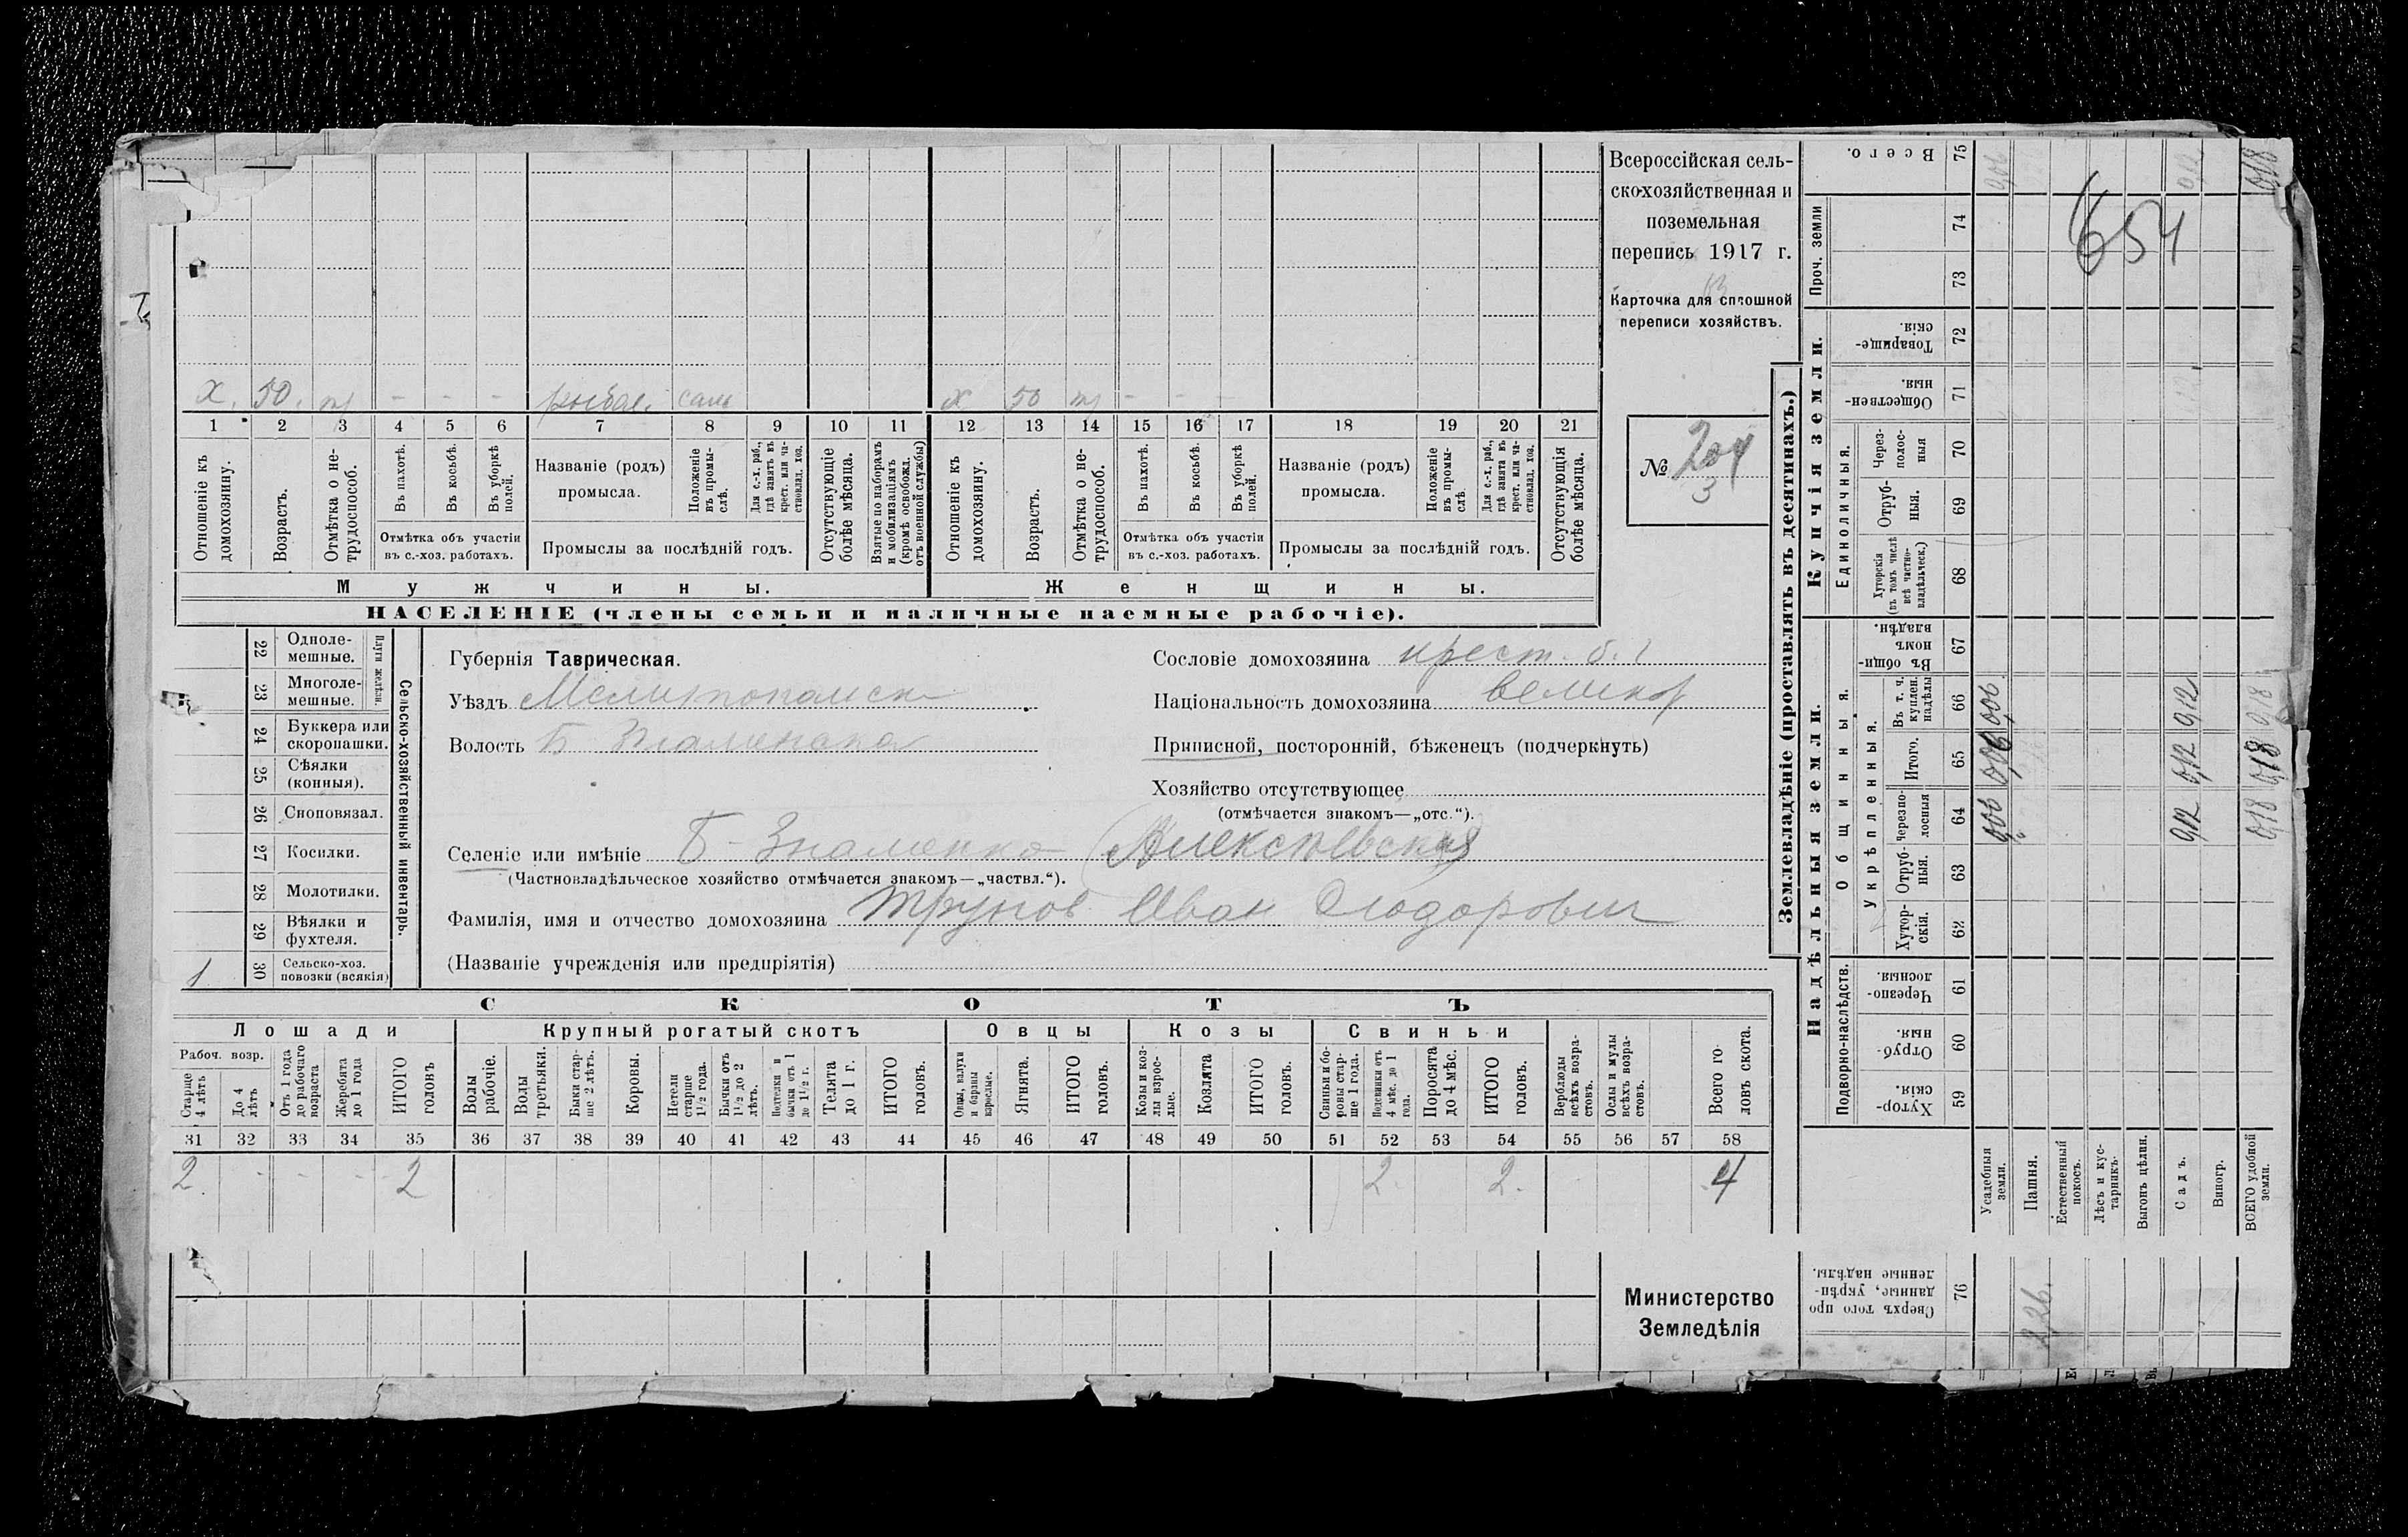 Всероссійская сель-
скохозяйственная и
поземельная
перепись 1917 г.
Карточка для сплошной
переписи хозяйствъ.
№ 204
3
654
х. 50. - - - рыбал. х 50 - - -
1 2 3 4 5 6 7 8 9 10 11 12 13 14 15 16 17 18 19 20 21
Отношеніе къ домохозяину.
Возрастъ.
Отмѣтка о не-
трудоспособ.
Въ пахотѣ.
Въ косьбѣ.
Въ уборкѣ полей.
Отмѣтка объ участіи
въ с.-хоз. работахъ.
Названіе (родъ)
промысла.
Положеніе въ промы-
слѣ.
Для с.-х. раб.,
гдѣ занятъ въ
крест. или ча-
стновлад. хоз.
Промыслы за послѣдній годъ.
Отсутствующіе
болѣе мѣсяца.
Взятые по наборамъ
и мобилизаціямъ
(кромѣ освобожд.
отъ военной службы)
Отношеніе къ
домохозяину.
Возрастъ.
Отмѣтка о не-
трудоспособ.
Въ пахотѣ.
Въ косьбѣ.
Въ уборкѣ
полей.
Отмѣтка объ участіи
въ с.-хоз. работахъ.
Названіе (родъ)
промысла.
Положеніе
въ промы-
слѣ.
Для с.-х. раб.,
гдѣ занята въ
крест. или ча-
стновлад. хоз.
Промыслы за послѣдній годъ.
Отсутствующія
болѣе мѣсяца.
Мужчины. Женщины.
НАСЕЛЕНІЕ (члены семьи и наличные наемные рабочіе).
22 Одноле-
мешные.
23 Многоле-
мешные.
Плуги желѣзн.
24 Буккера или
скоропашки.
25 Сѣялки
(конныя).
26 Сноповязал.
27 Косилки.
28 Молотилки.
29 Вѣялки и
фухтеля.
1 30 Сельско-хоз.
повозки (всякія)
Сельско-хозяйственный инвентарь.
Губернія Таврическая.
Уѣздъ Мелитопольск
Волость Б Знаменская
Сословіе домохозяина крест.
Національность домохозяина великор
Приписной, посторонній, бѣженецъ (подчеркнуть)
Хозяйство отсутствующее
(отмѣчается знакомъ—„отс.“).
Селеніе или имѣніе Б-Знаменка (Алексѣевская)
(Частновладѣльческое хозяйство отмѣчается знакомъ—„частвл.“).
Фамилія, имя и отчество домохозяина Трунов Иван Фіодорович
(Названіе учрежденія или предпріятія)
СКОТЪ
Лошади Крупный рогатый скотъ Овцы Козы Свиньи
Рабоч. возр.
Старше
4 лѣтъ
До 4
лѣтъ
Отъ 1 года
до рабочаго
возраста
Жеребята
до 1 года
ИТОГО
головъ
Волы
рабочіе.
Волы
третьяки.
Быки стар-
ше 2 лѣтъ.
Коровы.
Нетели
старше
1½ года.
Бычки отъ
1½ до 2
лѣтъ.
Подтелки и
бычки отъ 1
до 1½ г.
Телята
до 1 г.
ИТОГО
головъ.
Овцы, валухи
и бараны
взрослые.
Ягнята.
ИТОГО
головъ.
Козы и коз-
лы взрос-
лые.
Козлята
ИТОГО
головъ.
Свиньи и бо-
ровы стар-
ше 1 года.
Подсвинки отъ
4 мѣс. до 1
года.
Поросята
до 4 мѣс.
ИТОГО
головъ.
Верблюды
всѣхъ возра-
стовъ.
Ослы и мулы
всѣхъ возра-
стовъ.
Всего го-
ловъ скота.
31 32 33 34 35 36 37 38 39 40 41 42 43 44 45 46 47 48 49 50 51 52 53 54 55 56 57 58
2 - - - 2 2. 2. 4
Министерство
Земледѣлія
Землевладѣніе (проставлять въ десятинахъ.)
Надѣльныя земли. Купчія земли. Проч. земли
Подворно-наслѣдств. Общинныя. Единоличныя.
Укрѣпленныя.
Всего. 75
74
73
Товарище-
скія. 72
Обществен-
ныя. 71
Через-
полос-
ныя 70
Отруб-
ныя. 69
Хуторскія
(въ томъ числѣ
всѣ частно-
владѣльческ.) 68
Въ общи-
номъ
владѣн. 67
Въ т. ч.
куплен.
надѣлы 66
Итого. 65
Черезпо-
лосныя 64
Отруб-
ныя. 63
Хутор-
скія. 62
Черезпо-
лосныя. 61
Отруб-
ныя. 60
Хутор-
скія. 59
Усадебныя
земли.
Пашня.
Естественный
покосъ.
Лѣсъ и кус-
тарникъ.
Выгонъ цѣлин.
Садъ.
Виногр.
ВСЕГО удобной
земли.
0,06 0,06 0,06 0,06
0,12 0,12 0,12 0,12
0,18 0,18 0,18 0,18
Сверхъ того про-
данные, укрѣп-
ленные надѣлы. 76
2,26.